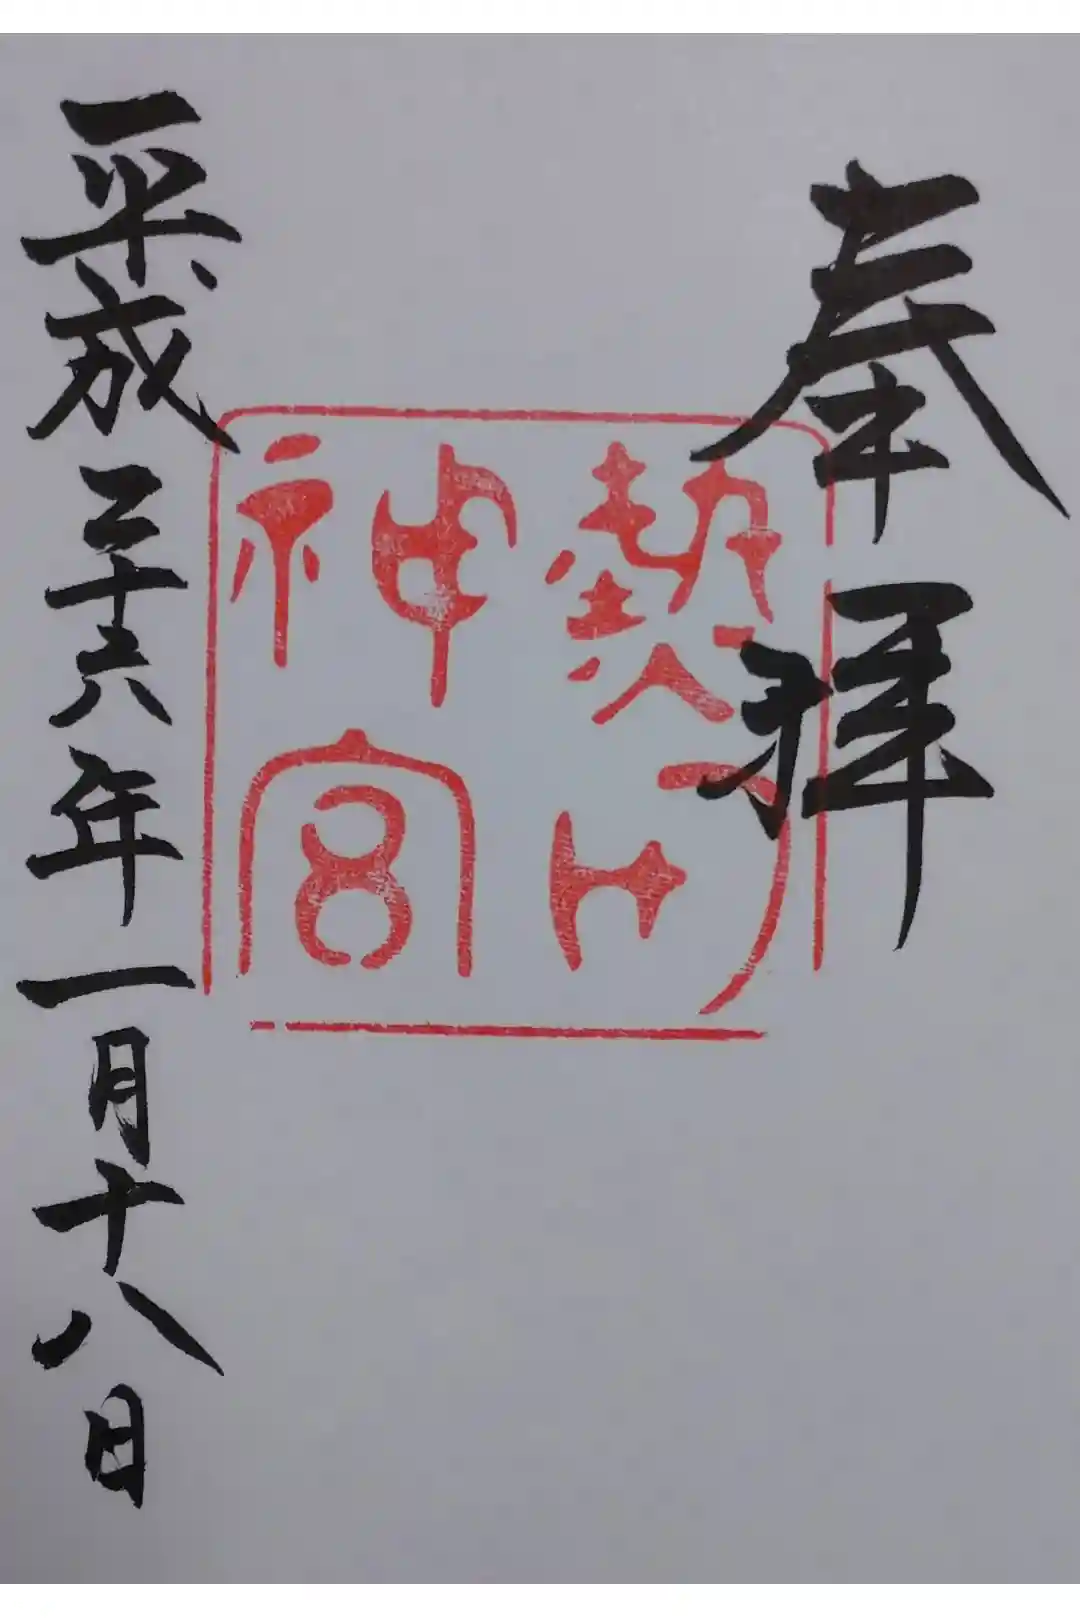 奉拝
熱田
神宮
平成二十六年一月十八日